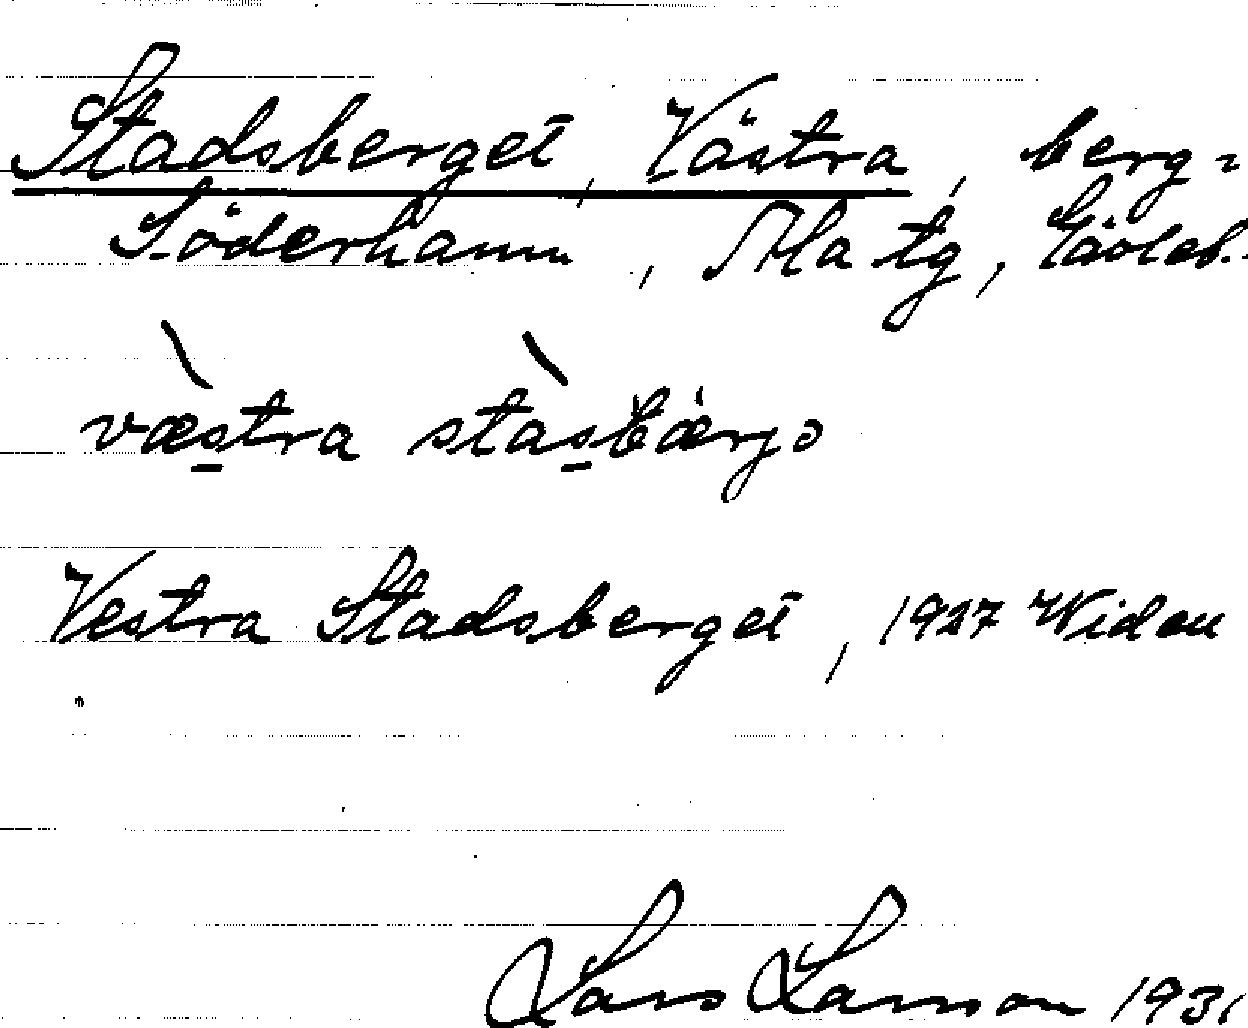 Stadsberget, Västra, berg-
Söderhamn, Ala tg, Gävleb.
væstra stasbærjo
Vestra Stadsberget, 1927 Widen
Lars Larsson 1931